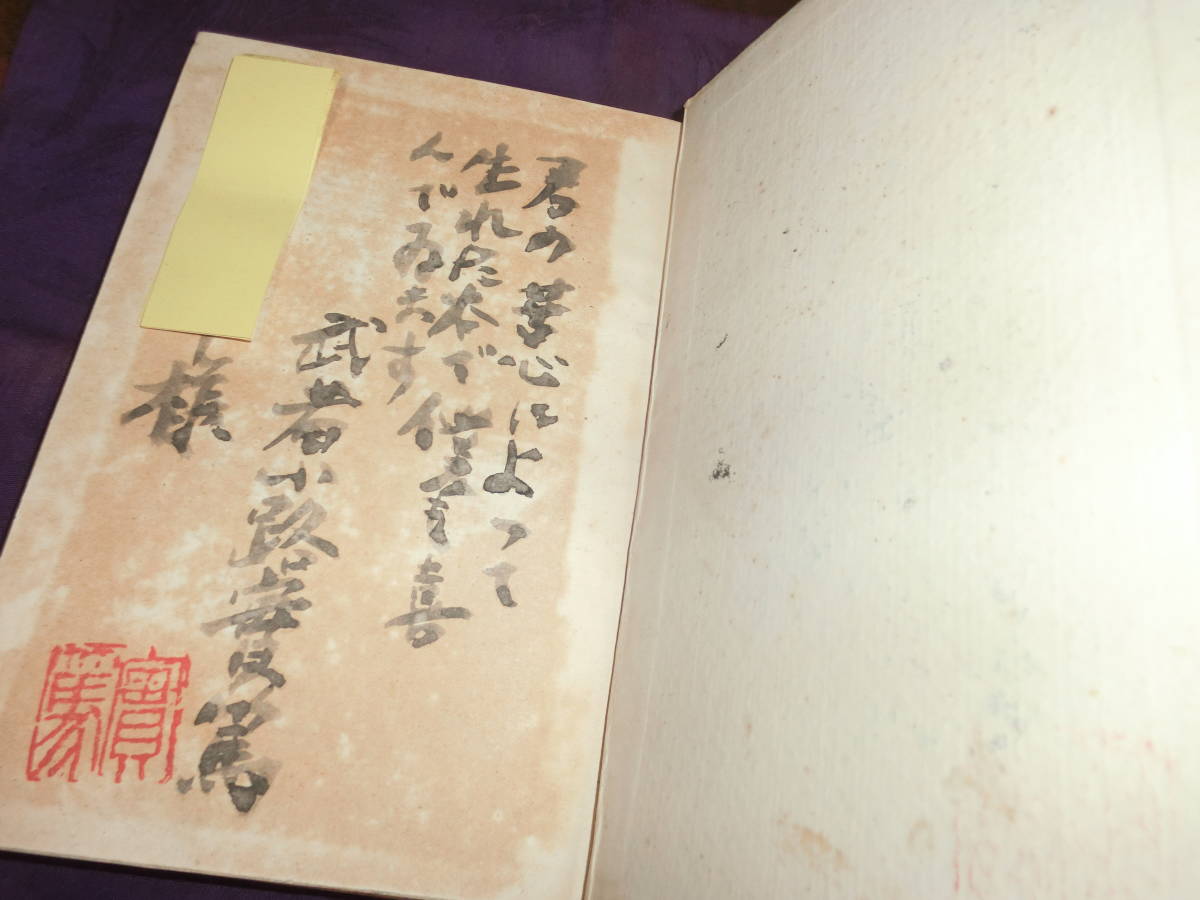 君の苦心によって
生れた本で僕も喜
んでゐます
武者小路實篤
様
實篤